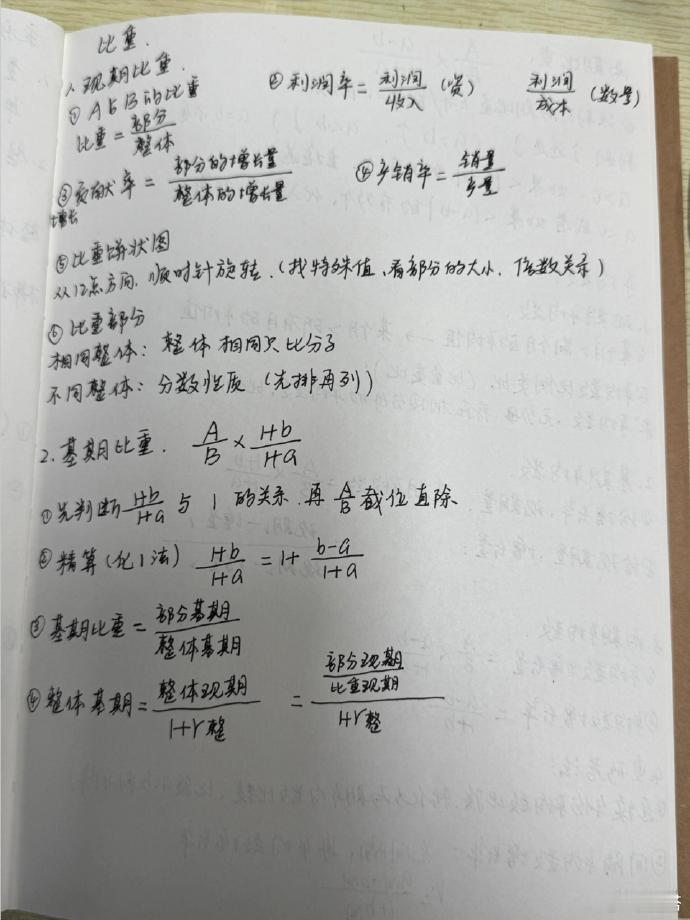 比重.
1. 现期比重.
① A占B的比重 ② 利润率 = 利润/收入 (资) 利润/成本 (数量)
比重 = 部分/整体
③ 贡献率 = 部分的增长量/整体的增长量 ④ 产销率 = 销量/产量
增长
⑤ 比重饼状图
从12点方向,顺时针旋转.(找特殊值、看部分的大小、倍数关系)
⑥ 比重部分
相同整体: 整体相同只比分子
不同整体: 分数性质 (先排再列)
2. 基期比重. A/B × 1+b/1+a
① 先判断 1+b/1+a 与 1 的关系.再 A/B 截位直除
② 精算(化1法) 1+b/1+a = 1+ b-a/1+a
③ 基期比重 = 部分基期/整体基期
④ 整体基期 = 整体现期/1+r整 = 部分现期/比重现期/1+r整